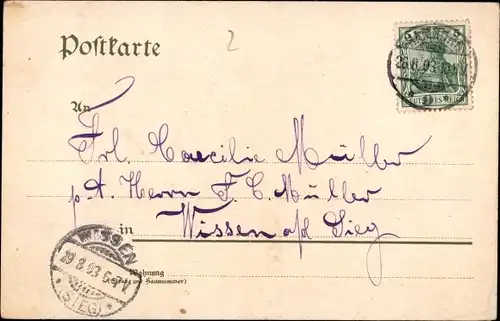 Postkarte
2
An
Frl. Caecilie Müller
p. A. Herrn F. C. Müller
in
Wissen a/d Sieg
Wohnung
(Straße und Hausnummer)
WISSEN
29.8.03
* (SIEG) *